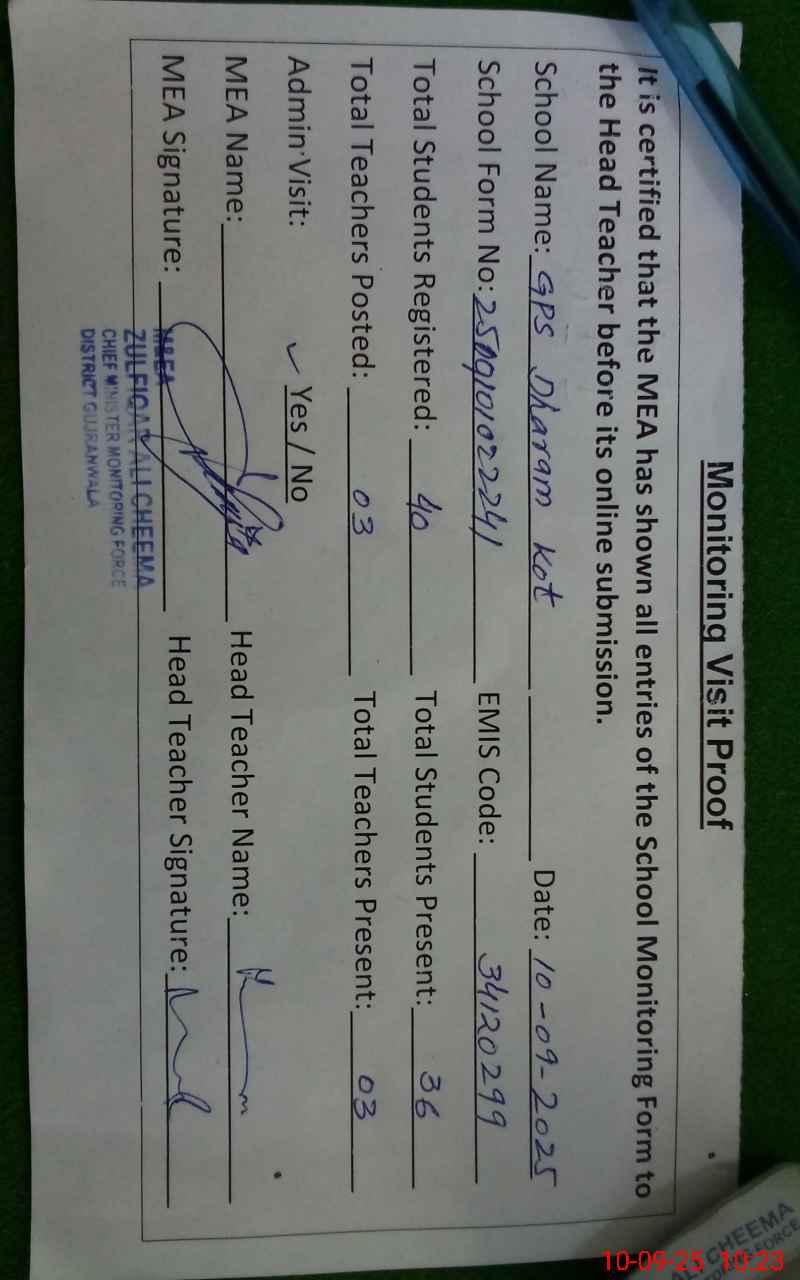 Monitoring Visit Proof
It is certified that the MEA has shown all entries of the School Monitoring Form to
the Head Teacher before its online submission.
School Name: GPS Dharam Kot Date: 10-09-2025
School Form No: 2509101022241 EMIS Code: 34120299
Total Students Registered: 40 Total Students Present: 36
Total Teachers Posted: 03 Total Teachers Present: 03
Admin Visit: ✓ Yes / No
MEA Name: Head Teacher Name:
MEA Signature: Head Teacher Signature:
M&EA
ZULFIQAR ALI CHEEMA
CHIEF MINISTER MONITORING FORCE
DISTRICT GUJRANWALA
CHEEMA
FORCE
10-09-25 10:23